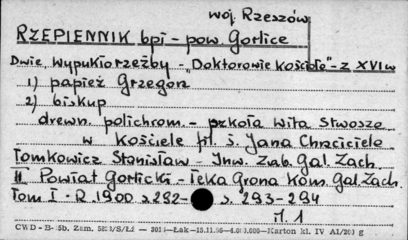 woj. Rzeszów
RZEPIENNIK bpi - pow. Gorlice
Dwie wypukłorzeźby - "Doktorowie Kościoła" - z XVI w
1) papież Grzegorz
2) biskup
drewn. polichrom. - szkoła Wita Stwosza
w kościele fil. ś. Jana Chrzciciela
Tomkowicz Stanisław - Inw. Zab. Gal. Zach.
II Powiat Gorlicki - Teka Grona Kons. Gal. Zach.
Tom I - R. 1900 s. 292- s. 293-294
il. 1
CWD - B- Zam. Łak — 15.11.56 Karton kl. IV A1/200 g